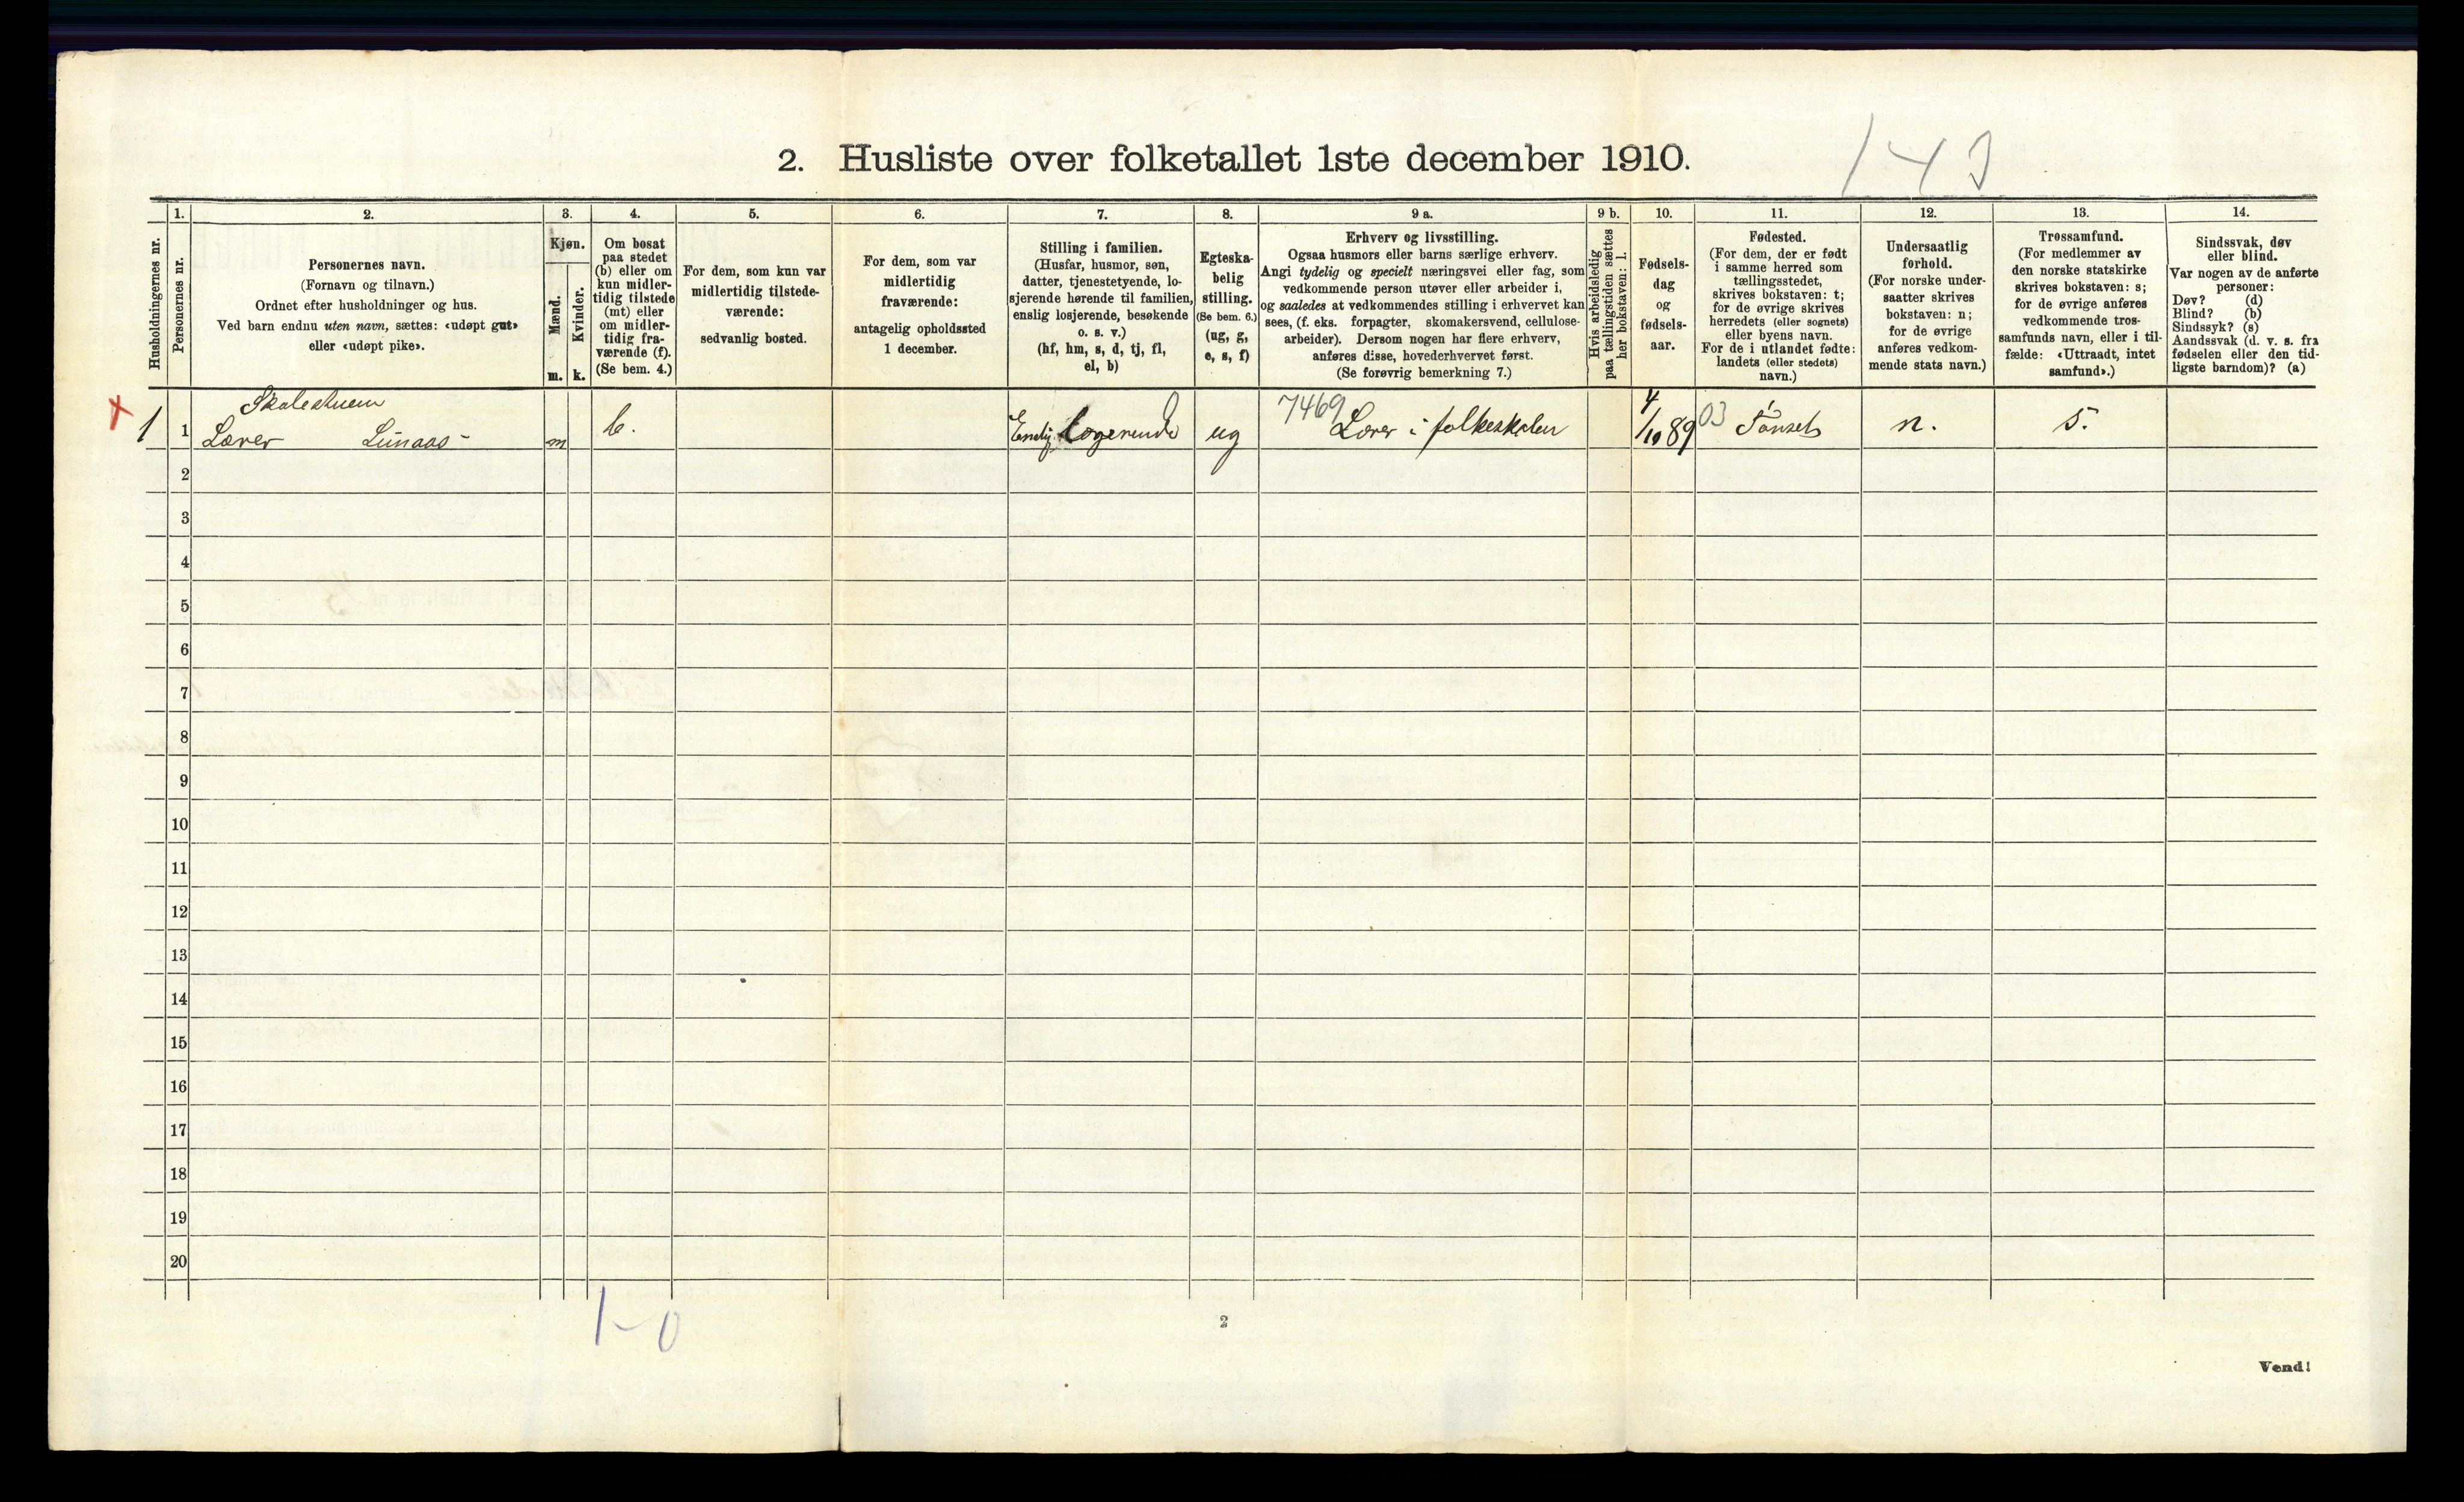 2. Husliste over folketallet 1ste december 1910.
143
Husholdningernes nr.
1.
Personernes nr.
2.
Personernes navn.
(Fornavn og tilnavn.)
Ordnet efter husholdninger og hus.
Ved barn endnu uten navn, sættes: «udøpt gut»
eller «udøpt pike».
3.
Kjøn.
Mænd.
Kvinder.
m. k.
4.
Om bosat
paa stedet
(b) eller om
kun midler-
tidig tilstede
(mt) eller
om midler-
tidig fra-
værende (f).
(Se bem. 4.)
5.
For dem, som kun var
midlertidig tilstede-
værende:
sedvanlig bosted.
6.
For dem, som var
midlertidig
fraværende:
antagelig opholdssted
1 december.
7.
Stilling i familien.
(Husfar, husmor, søn,
datter, tjenestetyende, lo-
sjerende hørende til familien,
enslig losjerende, besøkende
o. s. v.)
(hf, hm, s, d, tj, fl,
el, b)
8.
Egteska-
belig
stilling.
(Se bem. 6.)
(ug, g,
e, s, f)
9 a.
Erhverv og livsstilling.
Ogsaa husmors eller barns særlige erhverv.
Angi tydelig og specielt næringsvei eller fag, som
vedkommende person utøver eller arbeider i,
og saaledes at vedkommendes stilling i erhvervet kan
sees, (f. eks. forpagter, skomakersvend, cellulose-
arbeider). Dersom nogen har flere erhverv,
anføres disse, hovederhvervet først.
(Se forøvrig bemerkning 7.)
9 b.
Hvis arbeidsledig
paa tællingstiden sættes
her bokstaven: l.
10.
Fødsels-
dag
og
fødsels-
aar.
11.
Fødested.
(For dem, der er født
i samme herred som
tællingsstedet,
skrives bokstaven: t;
for de øvrige skrives
herredets (eller sognets)
eller byens navn.
For de i utlandet fødte:
landets (eller stedets)
navn.)
12.
Undersaatlig
forhold.
(For norske under-
saatter skrives
bokstaven: n;
for de øvrige
anføres vedkom-
mende stats navn.)
13.
Trossamfund.
(For medlemmer av
den norske statskirke
skrives bokstaven: s;
for de øvrige anføres
vedkommende tros-
samfunds navn, eller i til-
fælde: «Uttraadt, intet
samfund».)
14.
Sindssvak, døv
eller blind.
Var nogen av de anførte
personer:
Døv? (d)
Blind? (b)
Sindssyk? (s)
Aandssvak (d. v. s. fra
fødselen eller den tid-
ligste barndom)? (a)
Skolestuen
1 1 Lærer Lunaas - m b. Enslig logerende ug 7469 Lærer i folkeskolen 4/10 89 03 Tønset n. s.
2
3
4
5
6
7
8
9
10
11
12
13
14
15
16
17
18
19
20
1-0
2
Vend!